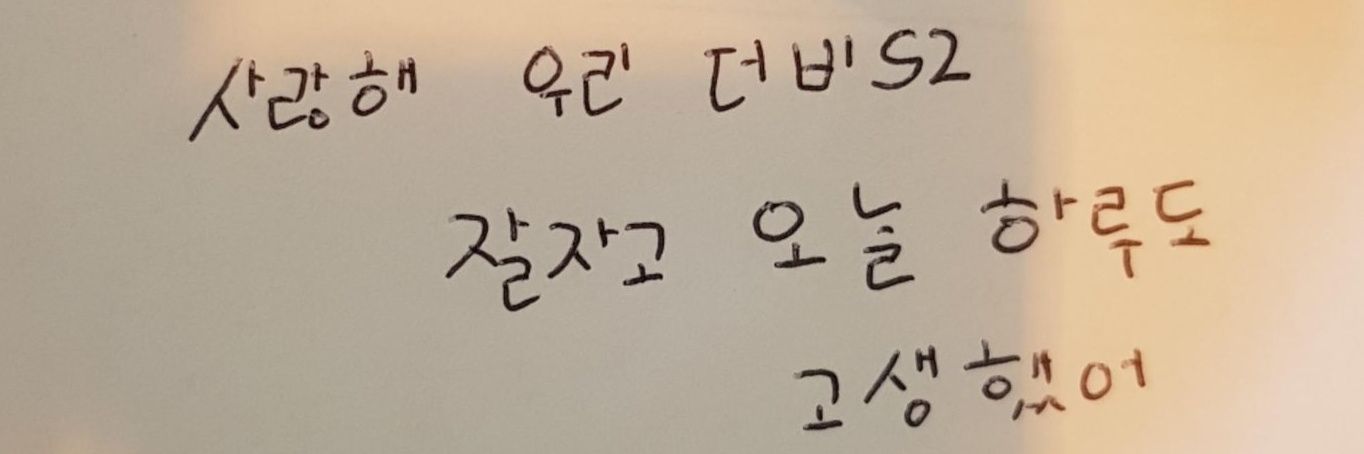 사랑해 우리 더비S2
잘자고 오늘 하루도
고생했어